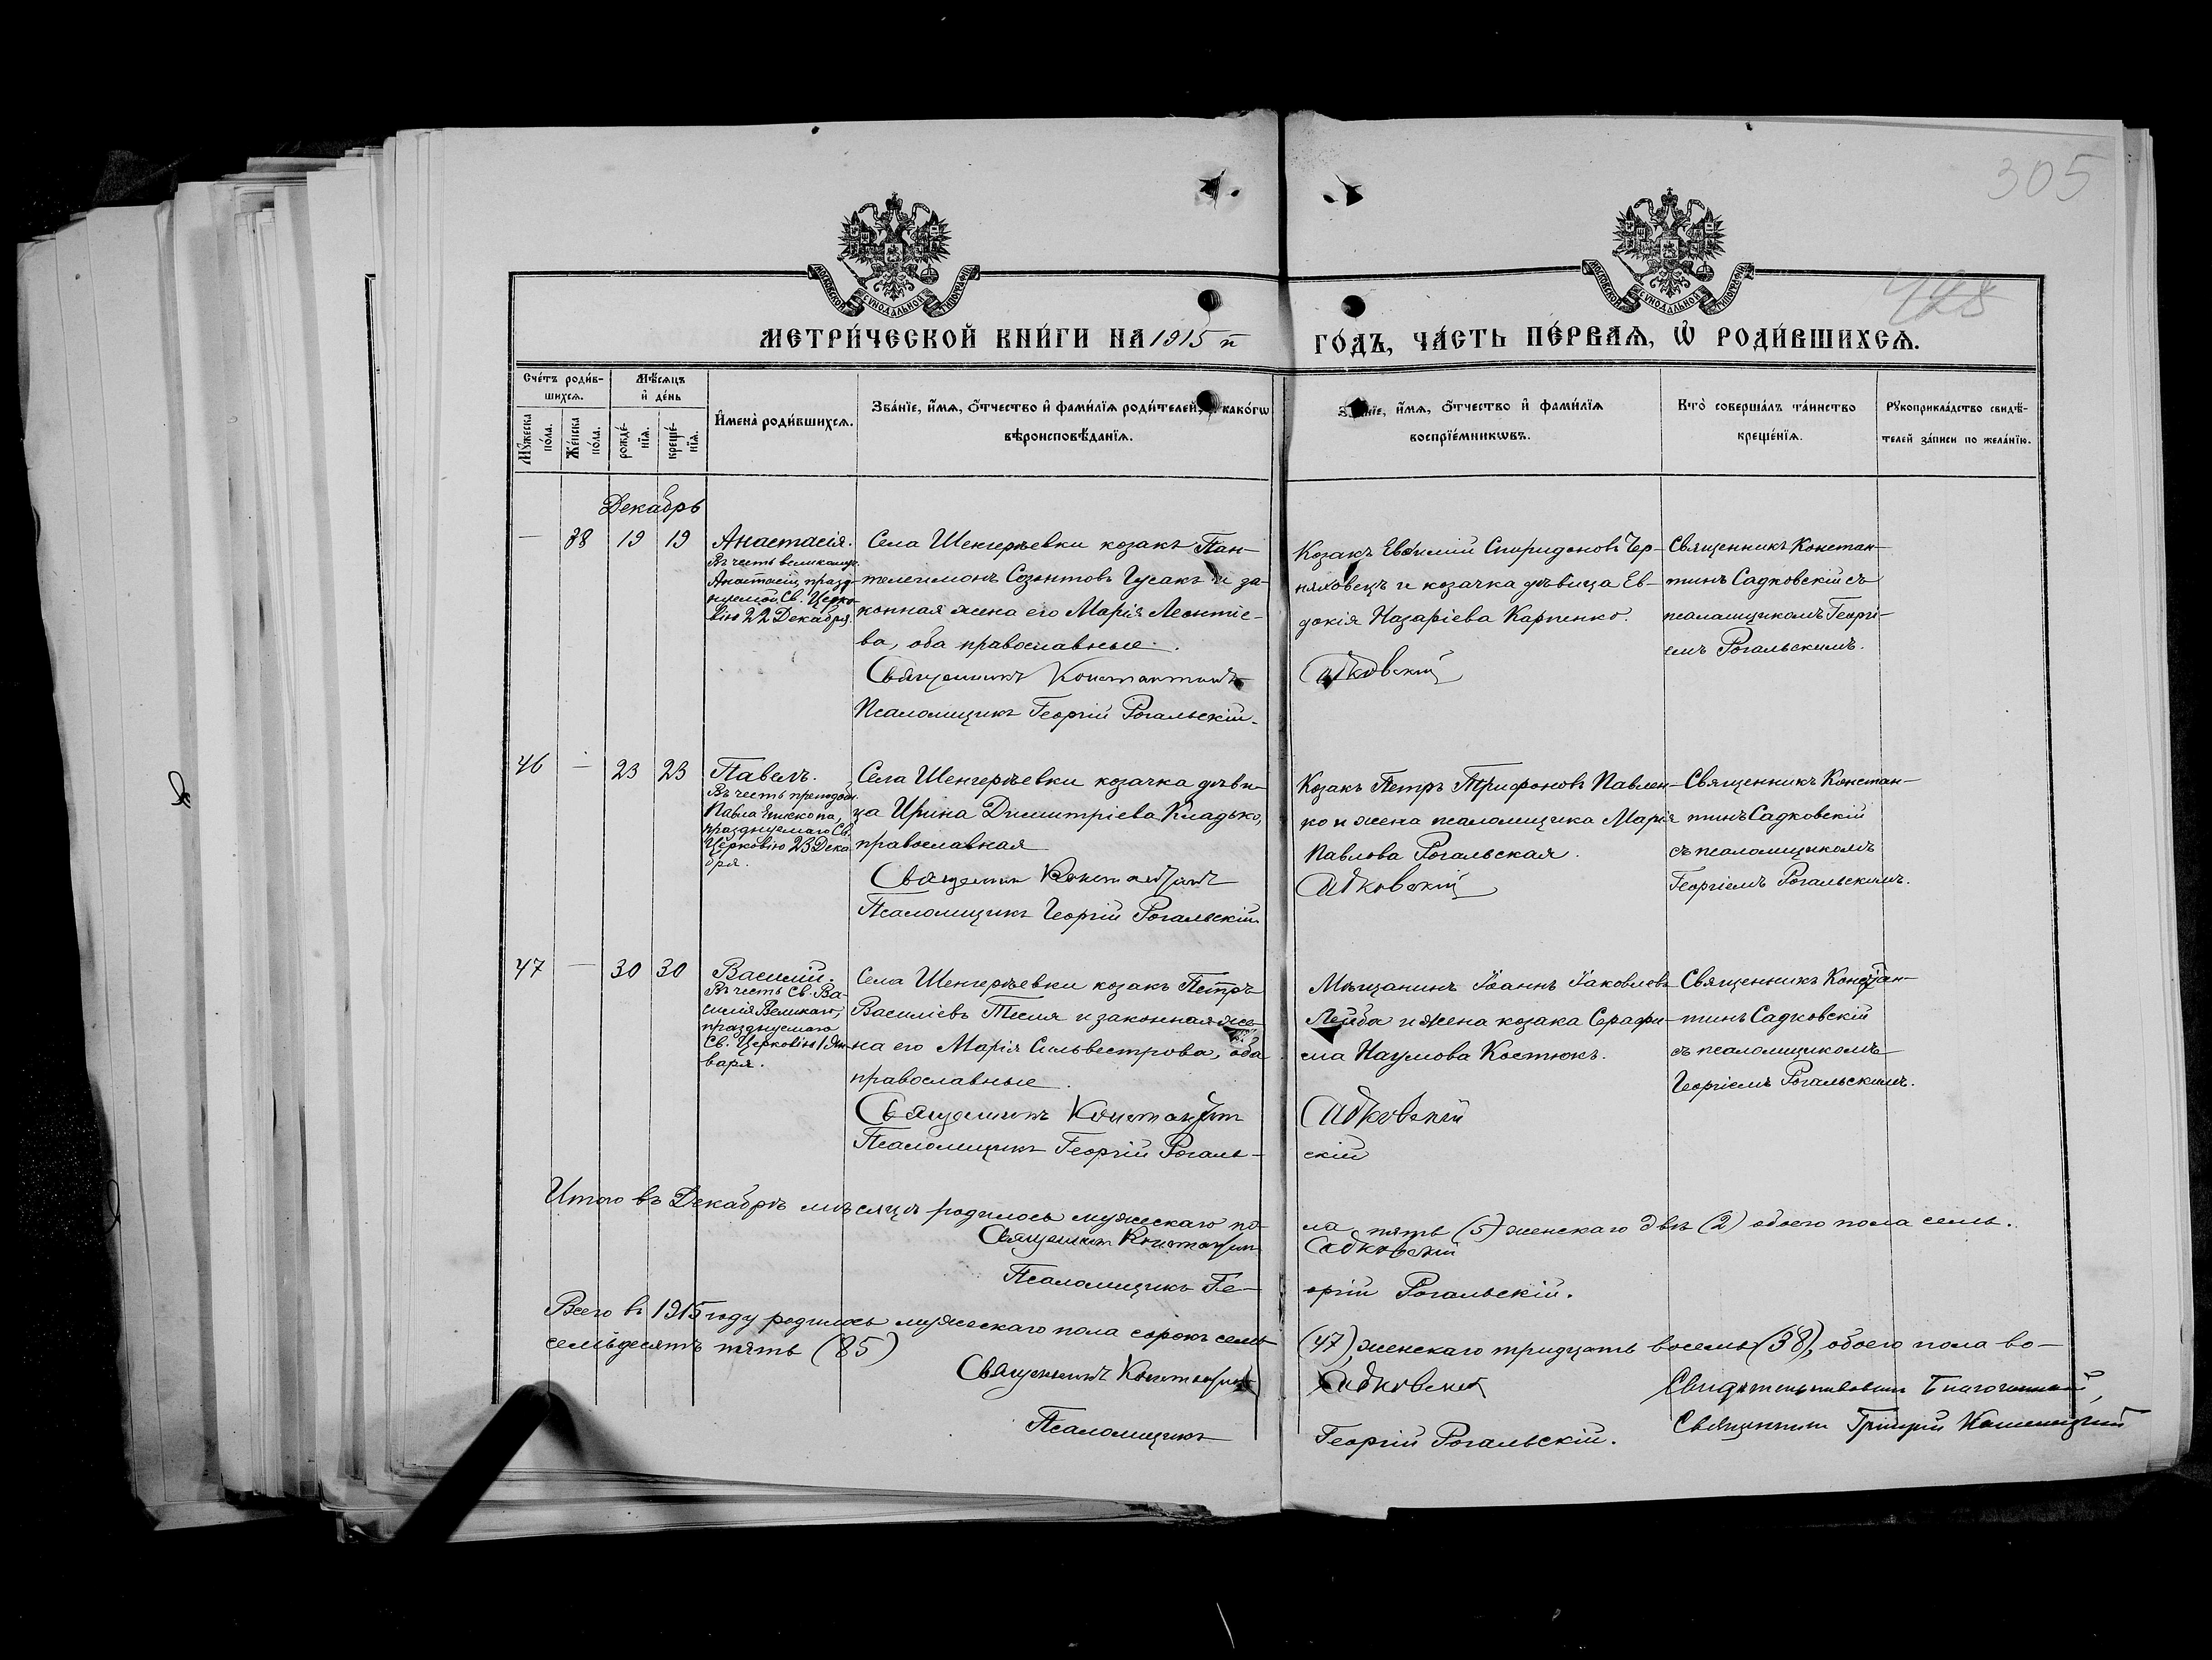 305
МОСКОВСКОЙ СѴНОДАЛЬНОЙ ТИПОГРАФІИ
МОСКОВСКОЙ СѴНОДАЛЬНОЙ ТИПОГРАФІИ
428
МЕТРИ́ЧЕСКОЙ КНИ́ГИ НА 1915 й
ГО́ДЪ, ЧА́СТЬ ПЕ́РВАѦ, Ѡ҆ РОДИ́ВШИХСѦ.
Сче́тъ роди́в-
шихсѧ.
Мꙋ́жеска по́ла.
Же́нска по́ла.
Мѣ́сѧцъ
и҆ де́нь
рожде́-
нїѧ.
креще́-
нїѧ.
И҆мена̀ роди́вшихсѧ.
Зва́нїе, и҆́мѧ, ѻ҆́тчество и҆ фами́лїѧ роди́телей, како́гѡ
вѣроисповѣ́данїѧ.
Зва́нїе, и҆́мѧ, ѻ҆́тчество и҆ фами́лїѧ
воспрїе́мникѡвъ.
Кто̀ соверша́лъ та́инство
креще́нїѧ.
Рꙋкоприкла́дство свидѣ́-
телей за́писи по жела́нїю.
Декабрь
— 38 19 19
Анастасія.
Въ честь великомуч.
Анастасіи, празд-
нуемой Св. Церко-
вію 22 Декабря.
Села Шенгерѣевки козакъ Пан-
телеимонъ Созонтовъ Гусакъ и за-
конная жена его Марія Леонтіе-
ва, оба православные.
Священникъ Константинъ
Псаломщикъ Георгій Рогальскій.
Козакъ Евѳимій Спиридоновъ Чер-
няховецъ и козачка дѣвица Ев-
докія Назаріева Карпенко.
Садковскій
Священникъ Констан-
тинъ Садковскій съ
псаломщикомъ Георгі-
емъ Рогальскимъ.
46 — 23 23
Павелъ.
Въ честь преподобн.
Павла Епископа,
празднуемаго Св.
Церковію 23 Дека-
бря.
Села Шенгерѣевки козачка дѣви-
ца Ирина Димитріева Кладько,
православная
Священник Константинъ
Псаломщикъ Георгій Рогальскій
Козакъ Петръ Трифоновъ Павлен-
ко и жена псаломщика Марія
Павлова Рогальская.
Садковскій
Священникъ Констан-
тинъ Садковскій
съ псаломщикомъ
Георгіемъ Рогальскимъ.
47 — 30 30
Василій.
Въ честь Св. Ва-
силія Великаго,
празднуемаго
Св. Церковію 1 Ян-
варя.
Села Шенгерѣевки козакъ Петръ
Василіевъ Тесля и законная же-
на его Марія Сильвестрова, оба
православные.
Священникъ Константин
Псаломщикъ Георгій Рогаль-
Мѣщанинъ Іоаннъ Іаковлевъ
Лейба и жена козака Серафи-
ма Наумова Костюкъ.
Садковскій
скій
Священникъ Констан-
тинъ Садковскій
съ псаломщикомъ
Георгіемъ Рогальскимъ.
Итого въ Декабрѣ мѣсяцѣ родилось мужескаго по-
ла пять (5) женскаго двѣ (2) обоего пола семь.
Священник Константин
Садковскій
Псаломщикъ Ге-
оргій Рогальскій.
Всего въ 1915 году родилось мужескаго пола сорокъ семь
(47), женскаго тридцать восемь (38), обоего пола во-
семьдесятъ пять (85)
Священникъ Константинъ
Садковскій
Свидѣтельствовалъ Благочинный,
Псаломщикъ
Георгій Рогальскій.
Священникъ Григорій